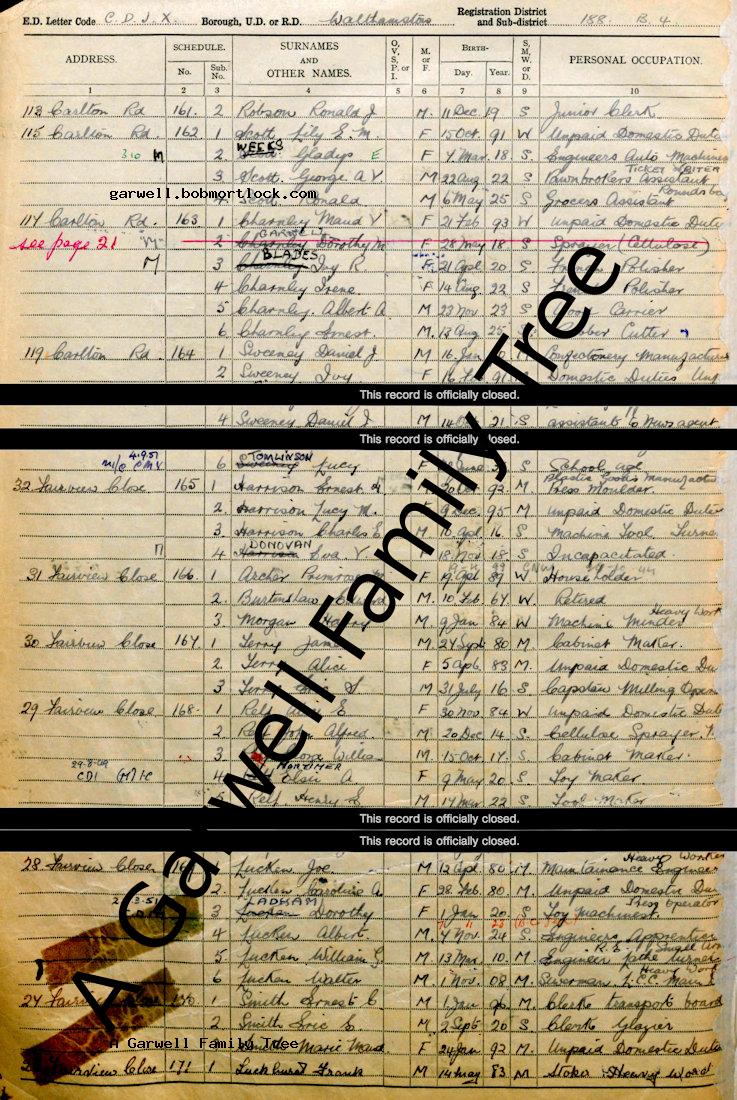 E.D. Letter Code C.D.J.X. Borough, U.D. or R.D. Walthamstow Registration District and Sub-district 188. B.4
ADDRESS. SCHEDULE. SURNAMES AND OTHER NAMES. O, V, S, P. or I. M. or F. BIRTH— S, M, W, or D. PERSONAL OCCUPATION.
No. Sub. No. Day. Year.
1 2 3 4 5 6 7 8 9 10
113 Carlton Rd 161. 2 Robson Ronald J M. 11 Dec. 19 S Junior Clerk
115 Carlton Rd. 162 1 Scott Lily E. M. F 15 Oct. 91 W Unpaid Domestic Dut
WEEKS
310 M 2. Gladys E F 4 Mar. 18 S. Engineers Auto Machine
TICKET WRITER
3 Scott. George A V. M 22 Aug 22 S Pawnbrokers Assistant
Roundsb
garwell.bobmortlock.com
4 Scott Ronald M 6 May 25 S Grocers Assistant
117 Carlton Rd. 163 1 Charnley Maud V F 21 Feb 93 W Unpaid Domestic Duti
GARWELL
see page 21 M 2 Charnley Dorothy M F 28 May 18 S Sprayer (Cellulose)
BLADES
M 3 Charnley Ivy R. F 21 Apl 20 S French Polisher
4 Charnley Irene F 14 Aug 22 S French Polisher
5 Charnley. Albert A M 23 Nov. 23 S Carrier
6 Charnley Ernest. M. 13 Aug 25 Cutter
119 Carlton Rd. 164 1 Sweeney Daniel J M 16 Jan M Confectionery Manufactur
2 Sweeney Ivy F 16 91 Domestic Duties Unp
This record is officially closed.
4 Sweeney Daniel J. M 14 21 S assistant to News agent
This record is officially closed.
4.9.51 TOMLINSON
M/C CMX 6 Sweeney Lucy F June S. School age
32 Fairview Close 165 1 Harrison Ernest Oct. 92 M. Press Moulder.
2. Harrison Lucy M. Dec. 95 M Unpaid Domestic Dutie
3 Harrison Charles E M 10 Apl. 16 S Machine Tool Turner
DONOVAN
4 Harrison Eva V. 18 Nov 18 S Incapacitated
31 Fairview Close 166. 1 Archer Primrose F 19 Apl 89 W Householder
2. Burtenshaw Edward M. 10 Feb 64 W. Retired
Heavy Work
3 Morgan Harry M 9 Jan 84 W Machine Minder
30 Fairview Close 167. 1 Terry James M 27 Sept 80 M. Cabinet Maker.
2 Terry Alice F 5 Apl. 83 M. Unpaid Domestic Du
3 Terry S M 31 July 16 S Capstan Milling Opera
29 Fairview Close 168. 1 Relf E F 30 Nov. 84 W Unpaid Domestic Dut
2 Alfred M 20 Dec 14 S. Cellulose Sprayer
3. William M. 15 Oct 17 S. Cabinet Maker.
MORTIMER
29-8-49
CD1 (M) 1C 4 Elsie A F 9 May 20 S Toy Maker
Relf. Henry M. 17 Mar. 22 S Tool Maker
This record is officially closed.
This record is officially closed.
Heavy Worker
28 Fairview Close Tucker Joe M 12 Apl. 80 M. Maintainance Engineer
2. Tucker Caroline A. F 28 Feb. 80 M. Unpaid Domestic Dut
LADHAM Press Operator
3.51
3 Dorothy F 1 Jan 20 S Toy Machinest.
4 Tucker Albert. M. 4 Nov. 24 S. Engineers Apprentice
Small
5 Tucker William G. M 13 Mar. 10 M. Engineer Lathe turner
Heavy Work
6 Tucker Walter M. 1 Nov. 08 M. Sewerman L.C.C. Main
27 Fairview Close 170. 1 Smith Ernest C. M 1 Jan 96 M. Clerk transport board
2 Smith Eric E M 2 Sept 20 S Clerk Glazier
A Garwell Family Tree
Marie Maud F 24 Jan 92 M Unpaid Domestic Dutie
Fairview Close 171 1 Luckhurst Frank M 14 May 83 M Stoker Heavy Work
A Garwell Family Tree